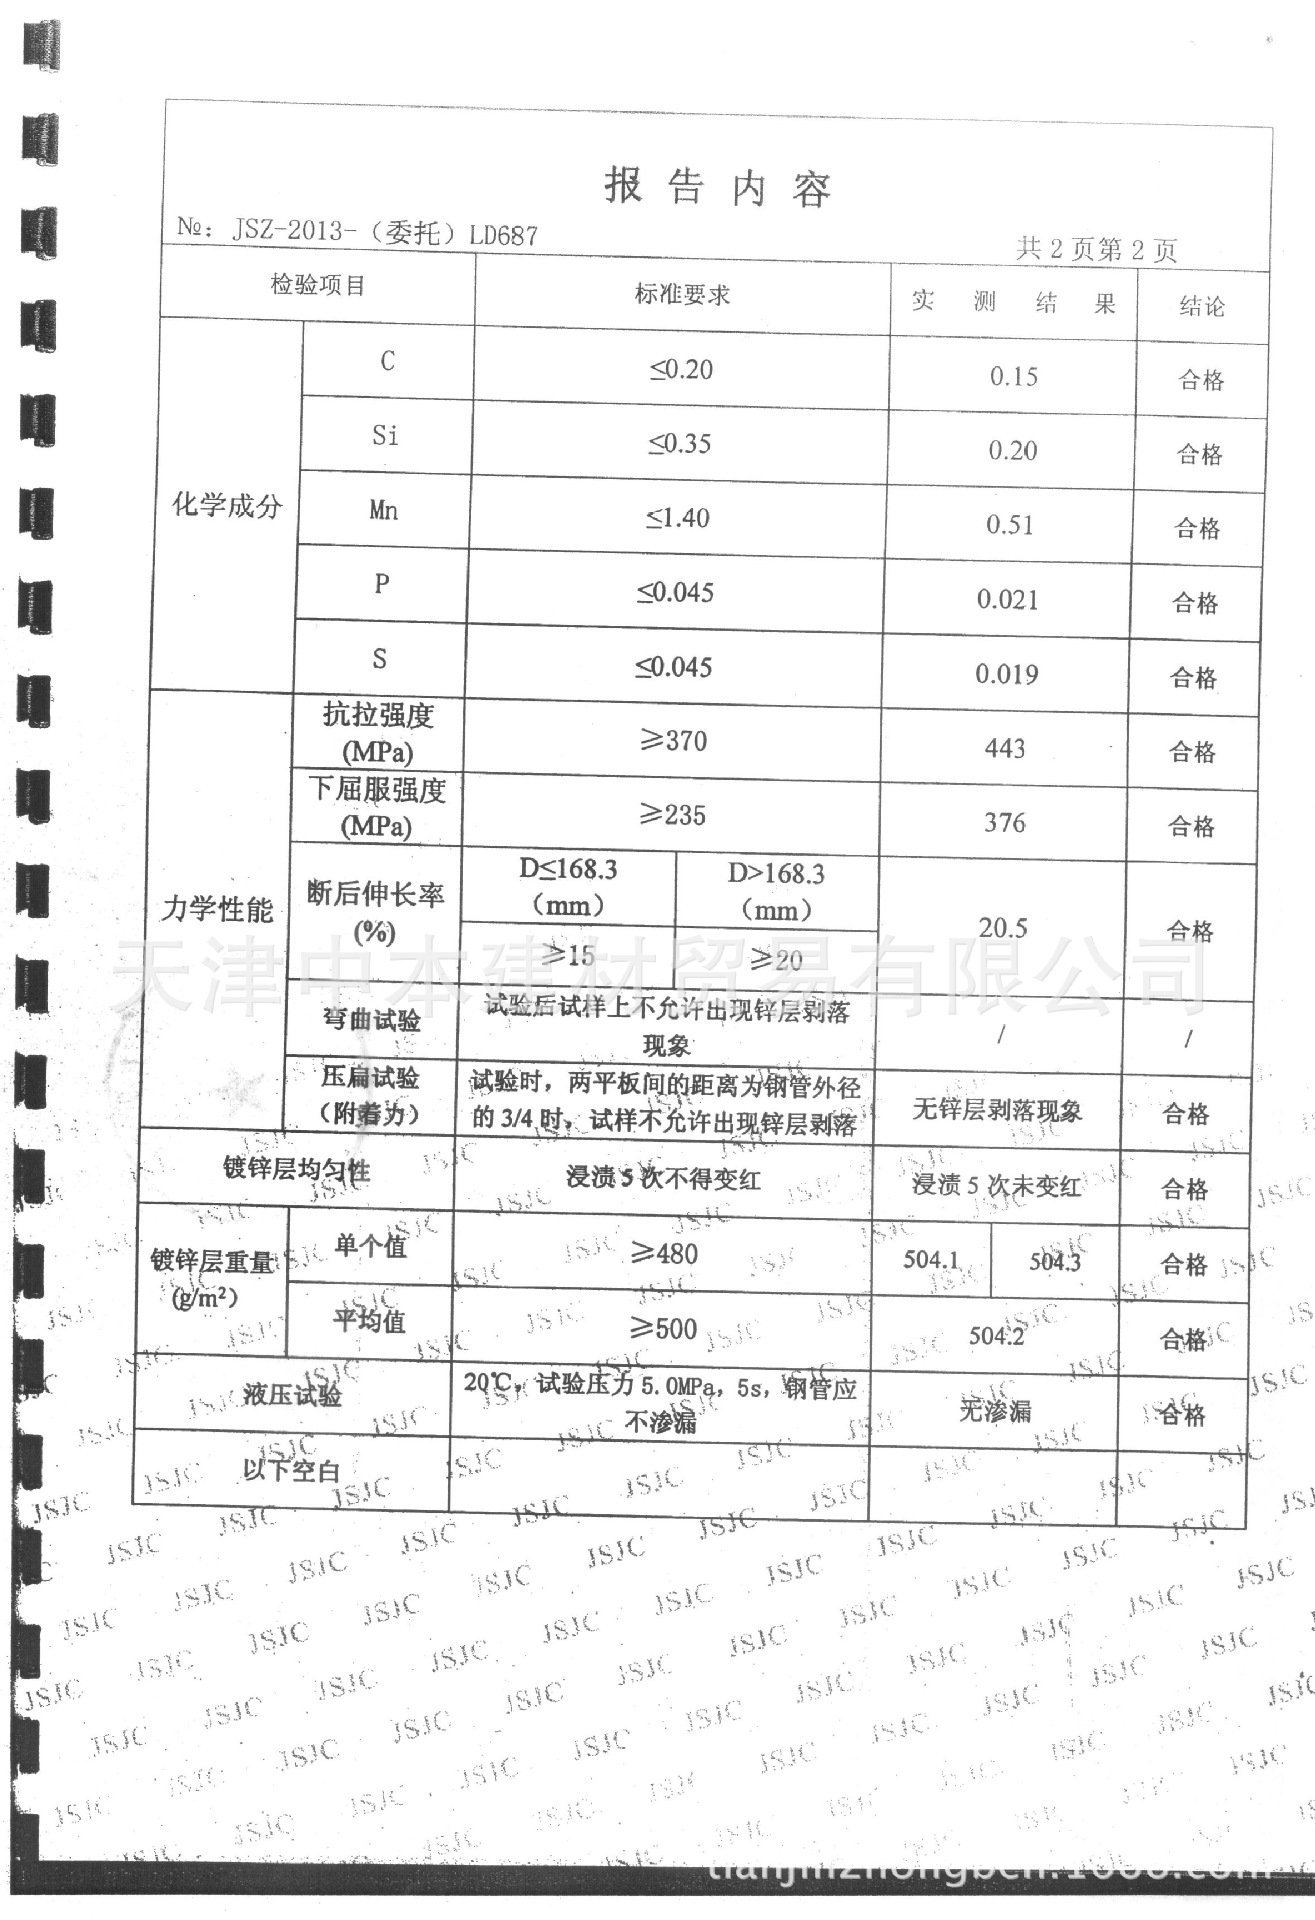 报告内容
№：JSZ-2013-（委托）LD687
共2页第2页
检验项目 标准要求 实测结果 结论
化学成分
C ≤0.20 0.15 合格
Si ≤0.35 0.20 合格
Mn ≤1.40 0.51 合格
P ≤0.045 0.021 合格
S ≤0.045 0.019 合格
力学性能
抗拉强度
(MPa)
≥370 443 合格
下屈服强度
(MPa)
≥235 376 合格
断后伸长率
(%)
D≤168.3
（mm）
D>168.3
（mm）
≥15 ≥20
20.5 合格
弯曲试验
试验后试样上不允许出现锌层剥落
现象
/ /
压扁试验
（附着力）
试验时，两平板间的距离为钢管外径
的3/4时，试样不允许出现锌层剥落
无锌层剥落现象 合格
镀锌层均匀性 浸渍5次不得变红 浸渍5次未变红 合格
镀锌层重量
(g/m²）
单个值 ≥480 504.1 504.3 合格
平均值 ≥500 504.2 合格
液压试验
20℃，试验压力5.0MPa，5s，钢管应
不渗漏
无渗漏 合格
以下空白
天津中本建材贸易有限公司
JSJC
tianjinzhongben.1688.com